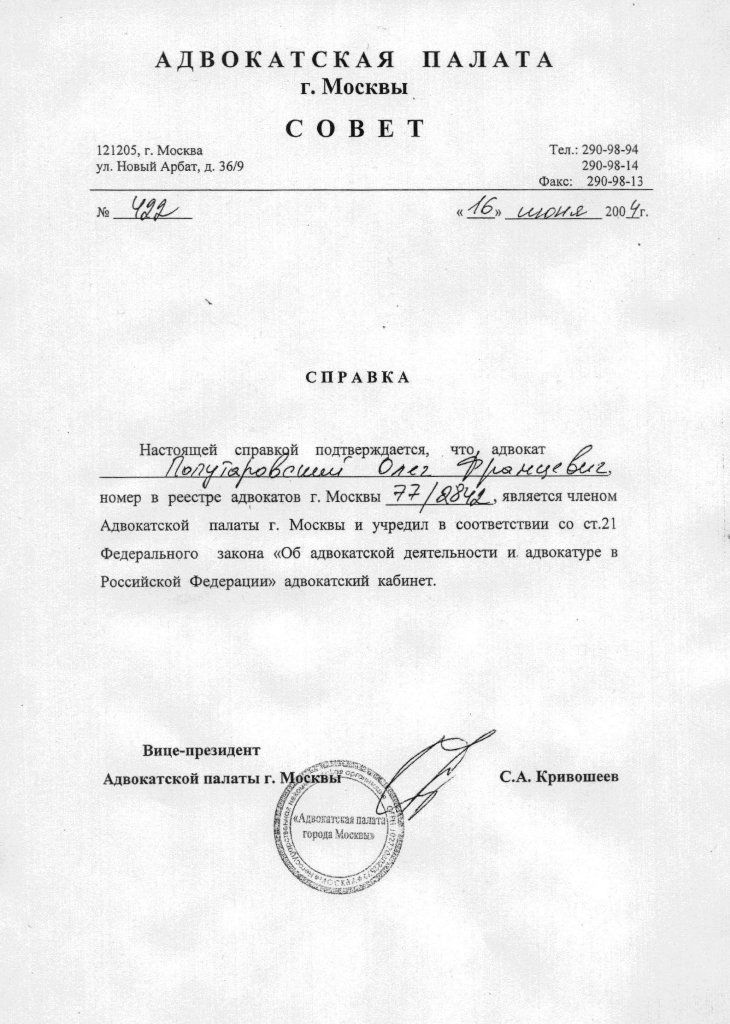 АДВОКАТСКАЯ ПАЛАТА
г. Москвы
СОВЕТ
121205, г. Москва
ул. Новый Арбат, д. 36/9
Тел.: 290-98-94
290-98-14
Факс: 290-98-13
№ 422
« 16 » июня 2004г.
СПРАВКА
Настоящей справкой подтверждается, что адвокат
Полутаровский Олег Францевич,
номер в реестре адвокатов г. Москвы 77/2842, является членом
Адвокатской палаты г. Москвы и учредил в соответствии со ст.21
Федерального закона «Об адвокатской деятельности и адвокатуре в
Российской Федерации» адвокатский кабинет.
Вице-президент
Адвокатской палаты г. Москвы
С.А. Кривошеев
«Адвокатская палата
города Москвы»
МОСКВА